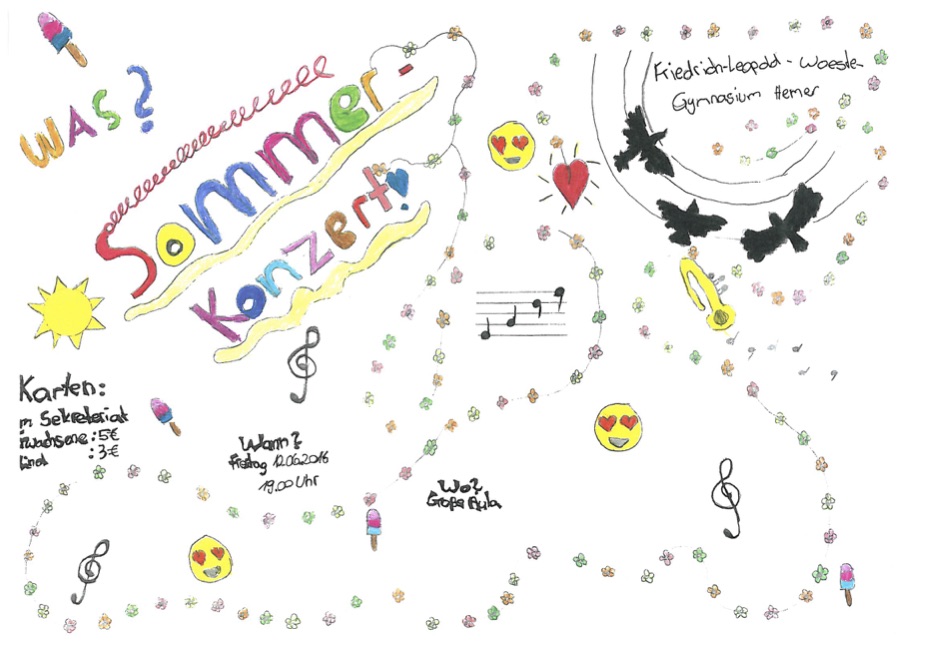 WAS?
Sommer-
Konzert!
Friedrich-Leopold-Woeste-
Gymnasium Hemer
Karten:
m Sekreteriat
rwachsene: 5€
ind : 3€
Wann?
Freitag 12.06.2016
19.00 Uhr
Wo?
Große Aula